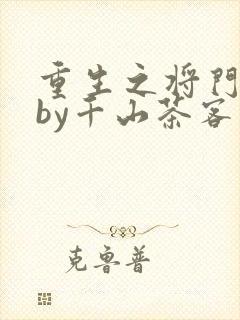 重生之将门
by千山茶客
克鲁普